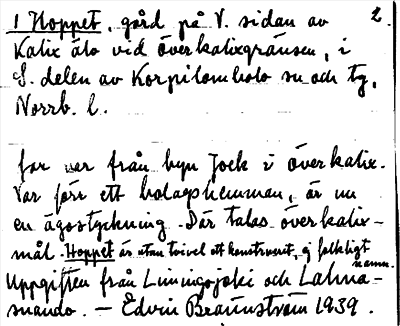 1 Hoppet, gård på V. sidan av 2.
Kalix älv vid Överkalixgränsen, i
S. delen av Korpilombolo sn och tg,
Norrb. l.
far var från byn Jock i Överkalix.
Var förr ett bolagshemman, är nu
en ägostyckning. Där talas överkalix-
mål. Hoppet är utan tvivel ett konstruerat, ej folkligt
namn.
Uppgiften från Liningojoki och Lahna-
suando. – Edvin Brännström 1939.